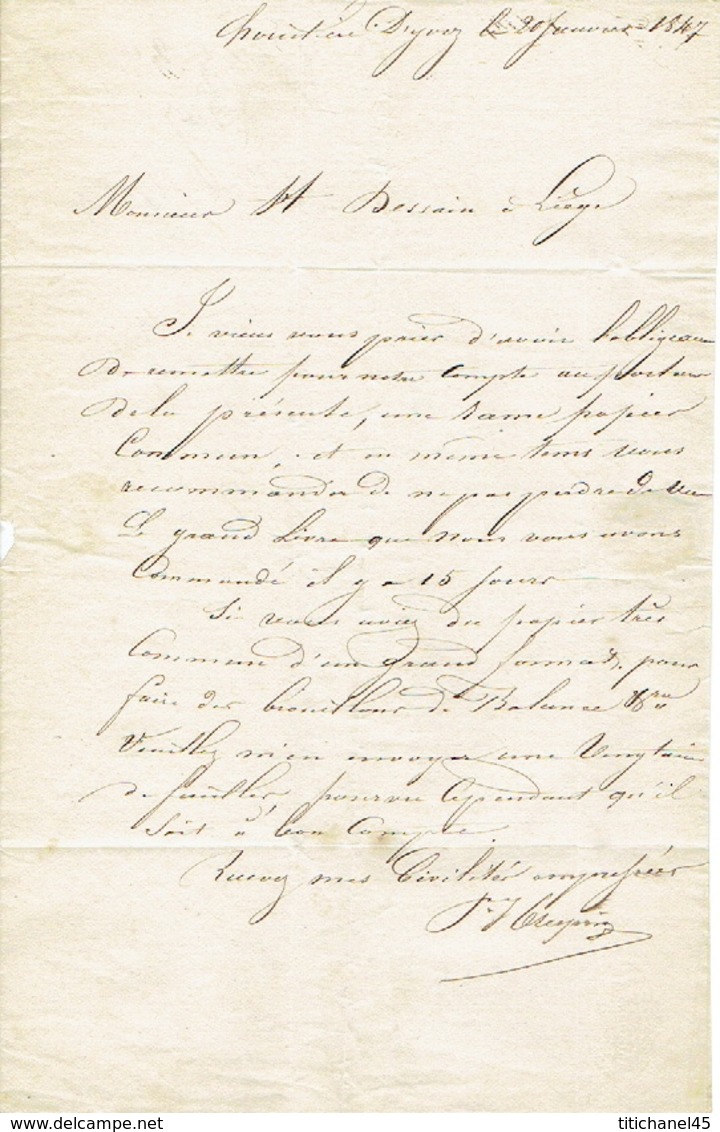 D'yvoz le 20 Janvier 1847
Monsieur H Dessain à Liège
Je viens vous prier d'avoir l'obligeance
De remettre pour notre Compte au porteur
De la présente, une rame papier
Commun, et en même tems vous
recommander de ne pas perdre de vue
Le grand Livre que Nous vous avons
Commandé il y a 15 Jours
Si vous aviez du papier très
Commun d'un grand format, pour
faire des brouillons de Balance
Veuillez m'en envoyer une Vingtaine
de feuilles, pourvu Cependant qu'il
Soit à bon Compte.
Recevez mes Civilités empressées
titichanel45